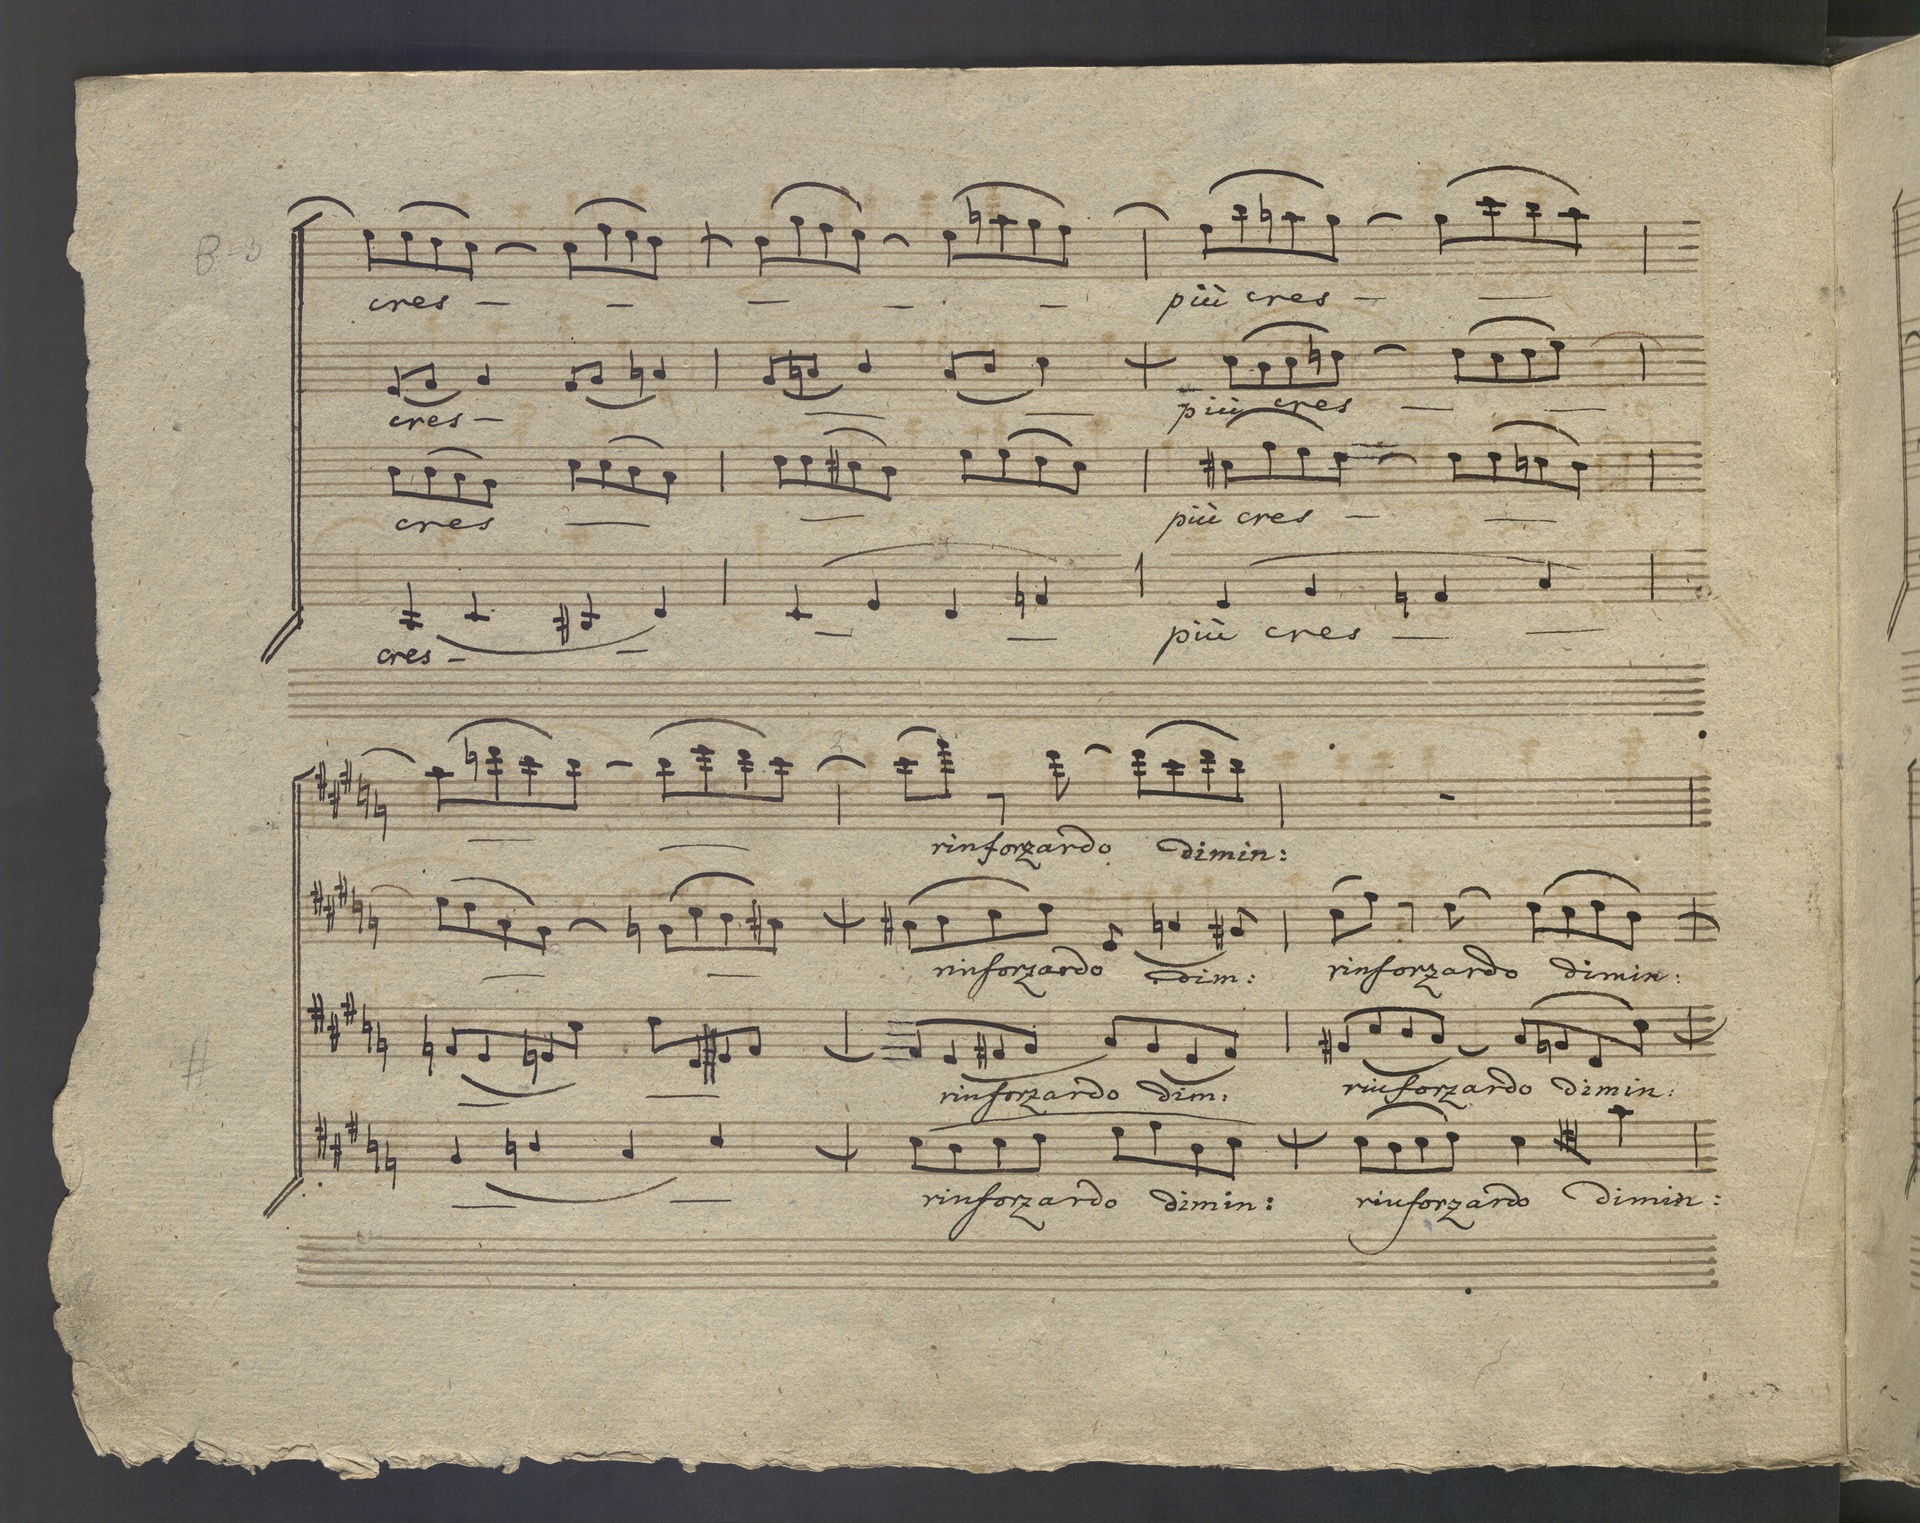 cres – – – – – più cres – –
cres – – – più cres – –
cres – – più cres – –
cres – – – – più cres – –
– – rinforzardo dimin:
– – rinforzardo dim: rinforzardo dimin:
– – rinforzardo dim: rinforzardo dimin:
– – rinforzardo dimin: rinforzardo dimin: